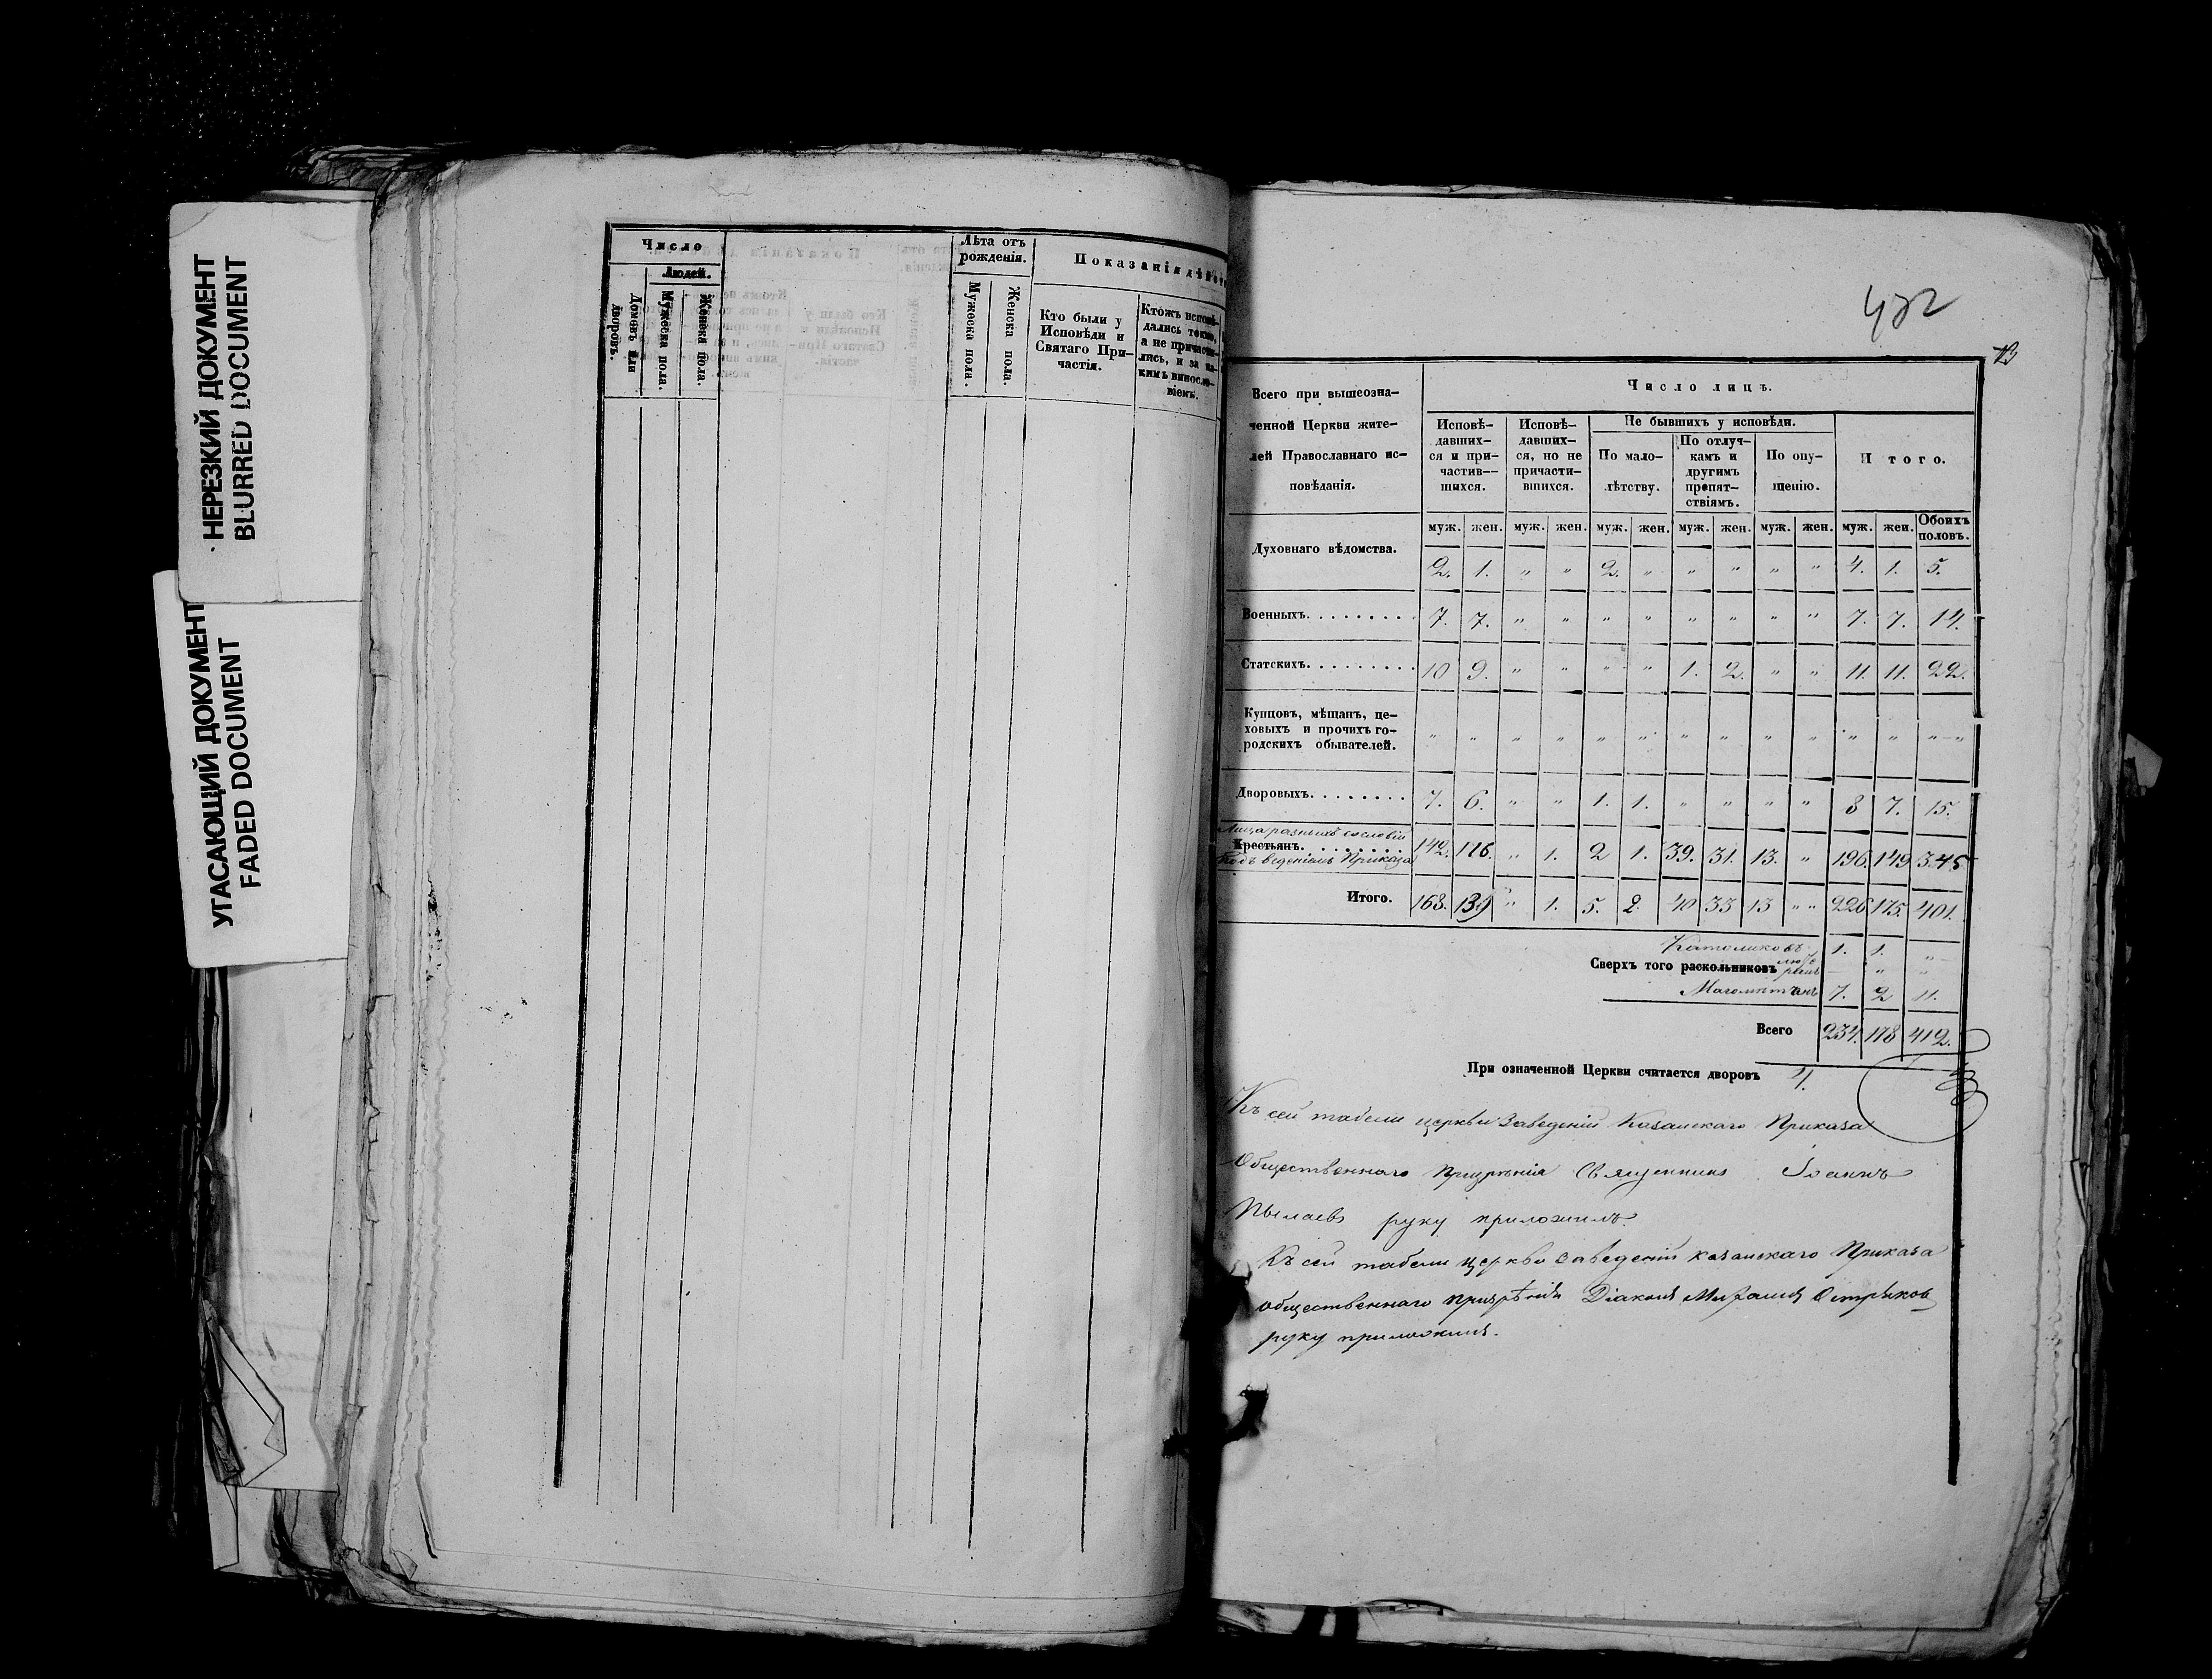 НЕРЕЗКИЙ ДОКУМЕНТ
BLURRED DOCUMENT
УГАСАЮЩИЙ ДОКУМЕНТ
FADED DOCUMENT
Число
Людей.
Домовъ или дворовъ.
Мужеска пола.
Женска пола.
Лѣта отъ рожденія.
Мужеска пола.
Женска пола.
Показанія дѣйст
Кто были у
Исповѣди и
Святаго При-
частія.
Ктожъ исповѣ-
дались токмо,
а не причасти-
лись, и за ка-
кимъ винослo-
віемъ.
Всего при вышеозна-
ченной Церкви жите-
лей Православнаго ис-
повѣданія.
Число лицъ.
Исповѣ-
давших-
ся и при-
частив-
шихся.
Исповѣ-
давших-
ся, но не
причасти-
вшихся.
Не бывшихъ у исповѣди.
По мало-
лѣтству.
По отлуч-
камъ и
другимъ
препят-
ствіямъ.
По опу-
щенію.
Итого.
муж. жен. муж. жен. муж. жен. муж. жен. муж. жен. муж. жен. Обоихъ половъ.
Духовнаго вѣдомства. 2. 1. „ „ 2. „ „ „ „ „ 4. 1. 5.
Военныхъ. 7. 7. „ „ „ „ „ „ „ „ 7. 7. 14.
Статскихъ. 10 9. „ „ „ „ 1. 2. „ „ 11. 11. 22.
Купцовъ, мѣщанъ, це-
ховыхъ и прочихъ го-
родскихъ обывателей. „ „ „ „ „ „ „ „ „ „ „ „ „ „
Дворовыхъ. 7. 6. „ „ 1. 1. „ „ „ „ 8 7. 15.
Лица разныхъ сословій
Крестьянъ. 142. 116. „ 1. 2 1. 39. 31. 13. „ 196. 149 345
подъ веденіемъ Приказа
Итого. 168. 139 „ 1. 5. 2. 40 33 13 „ „ 226 175. 401.
Католиковъ 1. 1. „
Сверхъ того раскольниковъ „ „
Магометанъ 7. 2 11.
Всего 234. 178 412.
При означенной Церкви считается дворовъ 4.
Къ сей табели церкви Заведеній Казанскаго Приказа
Общественнаго Призрѣнія Священникъ Іоаннъ
Пылаевъ руку приложилъ.
Къ сей табели церкви заведеній казанскаго Приказа
общественнаго призрѣнія Діаконъ
руку приложилъ.